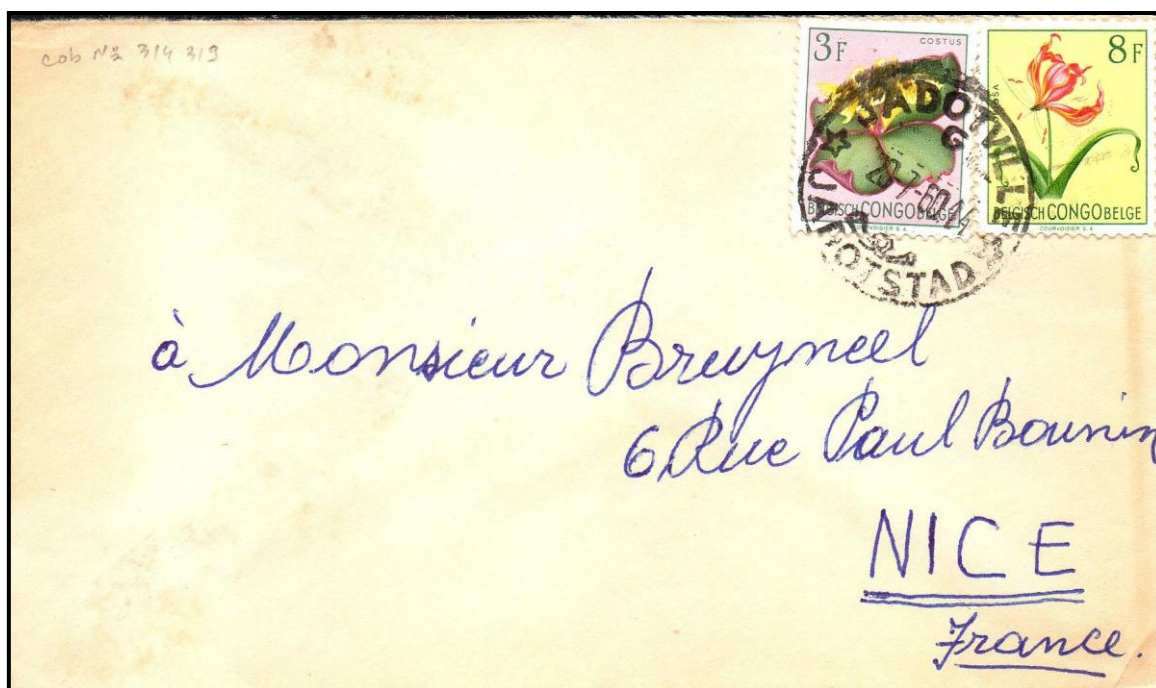 cob No 314 319
3F
COSTUS
BELGISCH CONGO BELGE
COURVOISIER S.A
8F
BELGISCH CONGO BELGE
COURVOISIER S.A
JADOTVILLE
G
-7-60
JADOTSTAD
à Monsieur Bruyneel
6 Rue Paul Bounin
NICE
France.